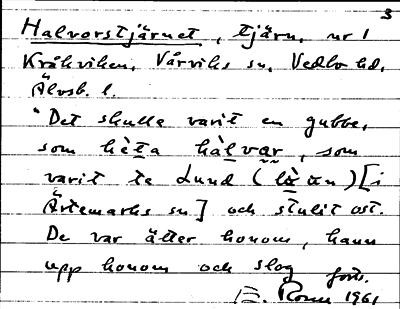 3
Halvorstjärnet, tjärn, nr 1
Kråkviken, Vårviks sn, Vedbo hd,
Älvsb. l.
"Det skulle varit en gubbe,
som hèta hàlvar, som
varit te Lund (lὰn) [i
Ärtemarks sn] och stulit ost.
De var ätter honom, hann
upp honom och slog forts.
E. Rosen 1961